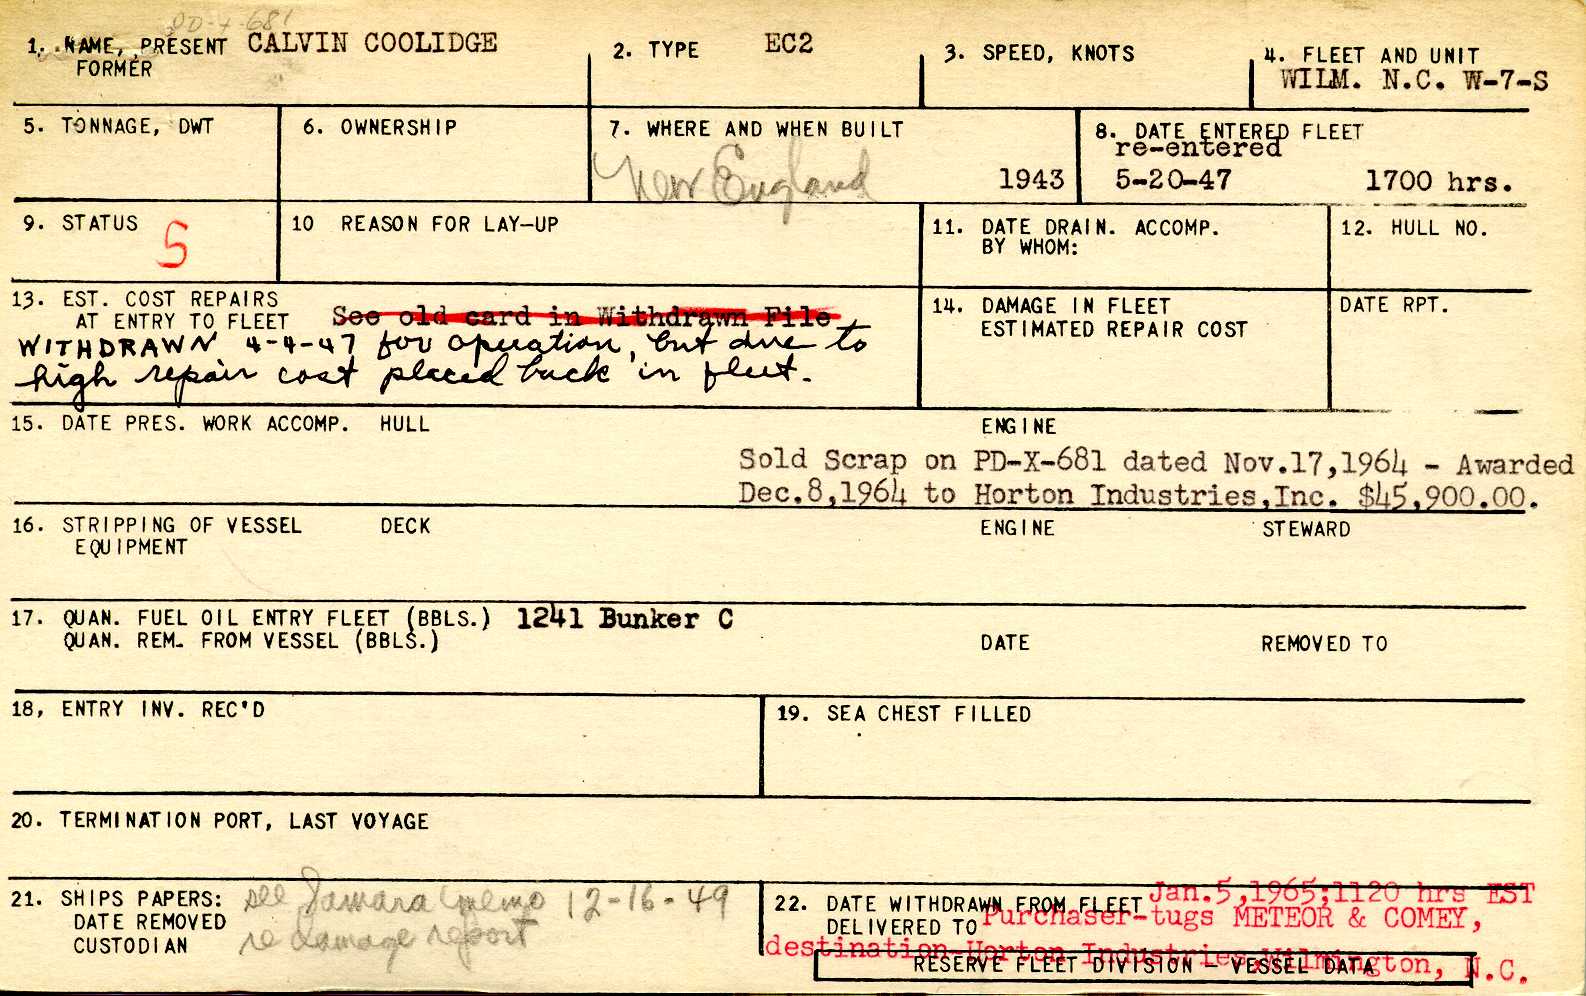 PD-X-681
1. NAME, PRESENT CALVIN COOLIDGE
FORMER
2. TYPE EC2
3. SPEED, KNOTS
4. FLEET AND UNIT
WILM. N.C. W-7-S
5. TONNAGE, DWT
6. OWNERSHIP
7. WHERE AND WHEN BUILT
New England 1943
8. DATE ENTERED FLEET
re-entered
5-20-47 1700 hrs.
9. STATUS S
10 REASON FOR LAY-UP
11. DATE DRAIN. ACCOMP.
BY WHOM:
12. HULL NO.
13. EST. COST REPAIRS
AT ENTRY TO FLEET See old card in Withdrawn File
WITHDRAWN 4-4-47 for operation, but due to
high repair cost placed back in fleet.
14. DAMAGE IN FLEET
ESTIMATED REPAIR COST
DATE RPT.
15. DATE PRES. WORK ACCOMP. HULL ENGINE
Sold Scrap on PD-X-681 dated Nov.17,1964 - Awarded
Dec.8,1964 to Horton Industries,Inc. $45,900.00.
16. STRIPPING OF VESSEL DECK ENGINE STEWARD
EQUIPMENT
17. QUAN. FUEL OIL ENTRY FLEET (BBLS.) 1241 Bunker C
QUAN. REM. FROM VESSEL (BBLS.) DATE REMOVED TO
18, ENTRY INV. REC'D
19. SEA CHEST FILLED
20. TERMINATION PORT, LAST VOYAGE
21. SHIPS PAPERS: see memo 12-16-49
DATE REMOVED re damage report
CUSTODIAN
22. DATE WITHDRAWN FROM FLEET Jan.5,1965;1120 hrs EST
DELIVERED TO Purchaser-tugs METEOR & COMEY,
destination-Horton Industries,Wilmington, N.C.
RESERVE FLEET DIVISION – VESSEL DATA